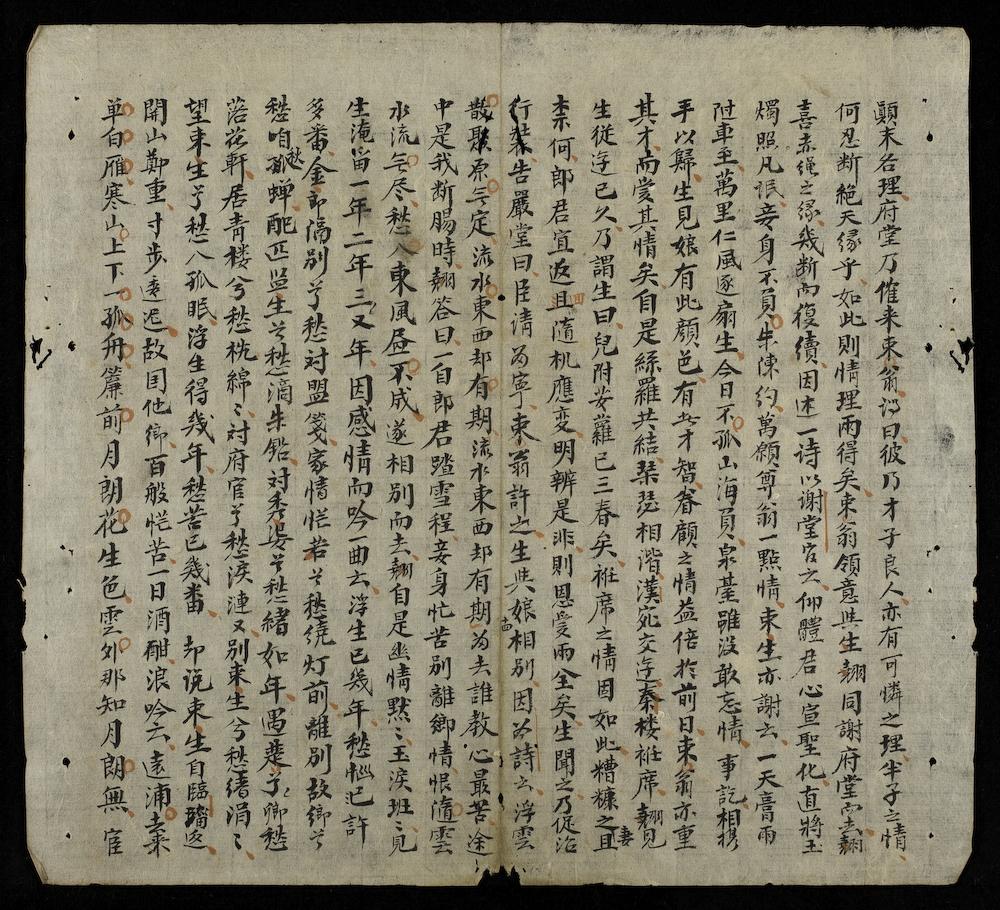 顛末名理府堂乃催来束翁誨曰彼乃才子良人亦有可憐之理半子之情
何忍断絶天縁乎如此則情理兩得矣束翁領意共生翹同謝府堂翹
喜赤縄之縁幾断而復續因述一詩以謝堂官云仰體君心宣聖化直將玉
燭照凡氓妾身不負朱陳約萬願尊翁一點情束生亦謝云一天膏雨
随車至萬里仁風逐扇生今日不孤山海負泉臺雖没敢忘情事訖相携
手以歸生見娘有此顔色有此才智眷顧之情益倍於前日束翁亦重
其才而賞其情矣自是絲羅共結琹瑟相諧漢苑交迎秦楼袵席翹見妻
生従迎已久乃謂生曰兒附女蘿已三春矣袵席之情因如此糟糠之且
柰何郎君宜返且隨机應変明辨是非則恩愛兩全矣生聞之乃促治
行装告嚴堂曰臣清為寧束翁許之生共娘相别因為詩云浮雲
散聚原無定流水東西却有期流水東西却有期為去誰教心最苦途
中是我断腸時翹答曰一自郎君踏雪程妾身忙苦别離鄉情恨隨雲
水流無尽愁入東風昼不成遂相别而去翹自是幽情默〻玉淚班〻見
生淹留一年二年三又年因感情而吟一曲云浮生已幾年愁惱已許
多番金郎隔别兮愁対盟箋家情忙若兮愁繞灯前離别故鄉兮
愁咱孤蝉配匹监生兮愁滴朱鉛対秀婆兮愁緒如年遇楚了卿愁
落花軒居青楼兮愁枕綿〻対府官兮愁淚漣又别束生兮愁緒涓〻
望束生兮愁入孤眠浮生得幾年愁苦已幾番 却说束生自臨𦙶返
開山鄭重寸步遠迟故国他鄉百般忙苦一日酒酣浪吟云遠浦去来
单白雁寒山上下一孤舟簾前月朗花生色雲外那知月朗無宦